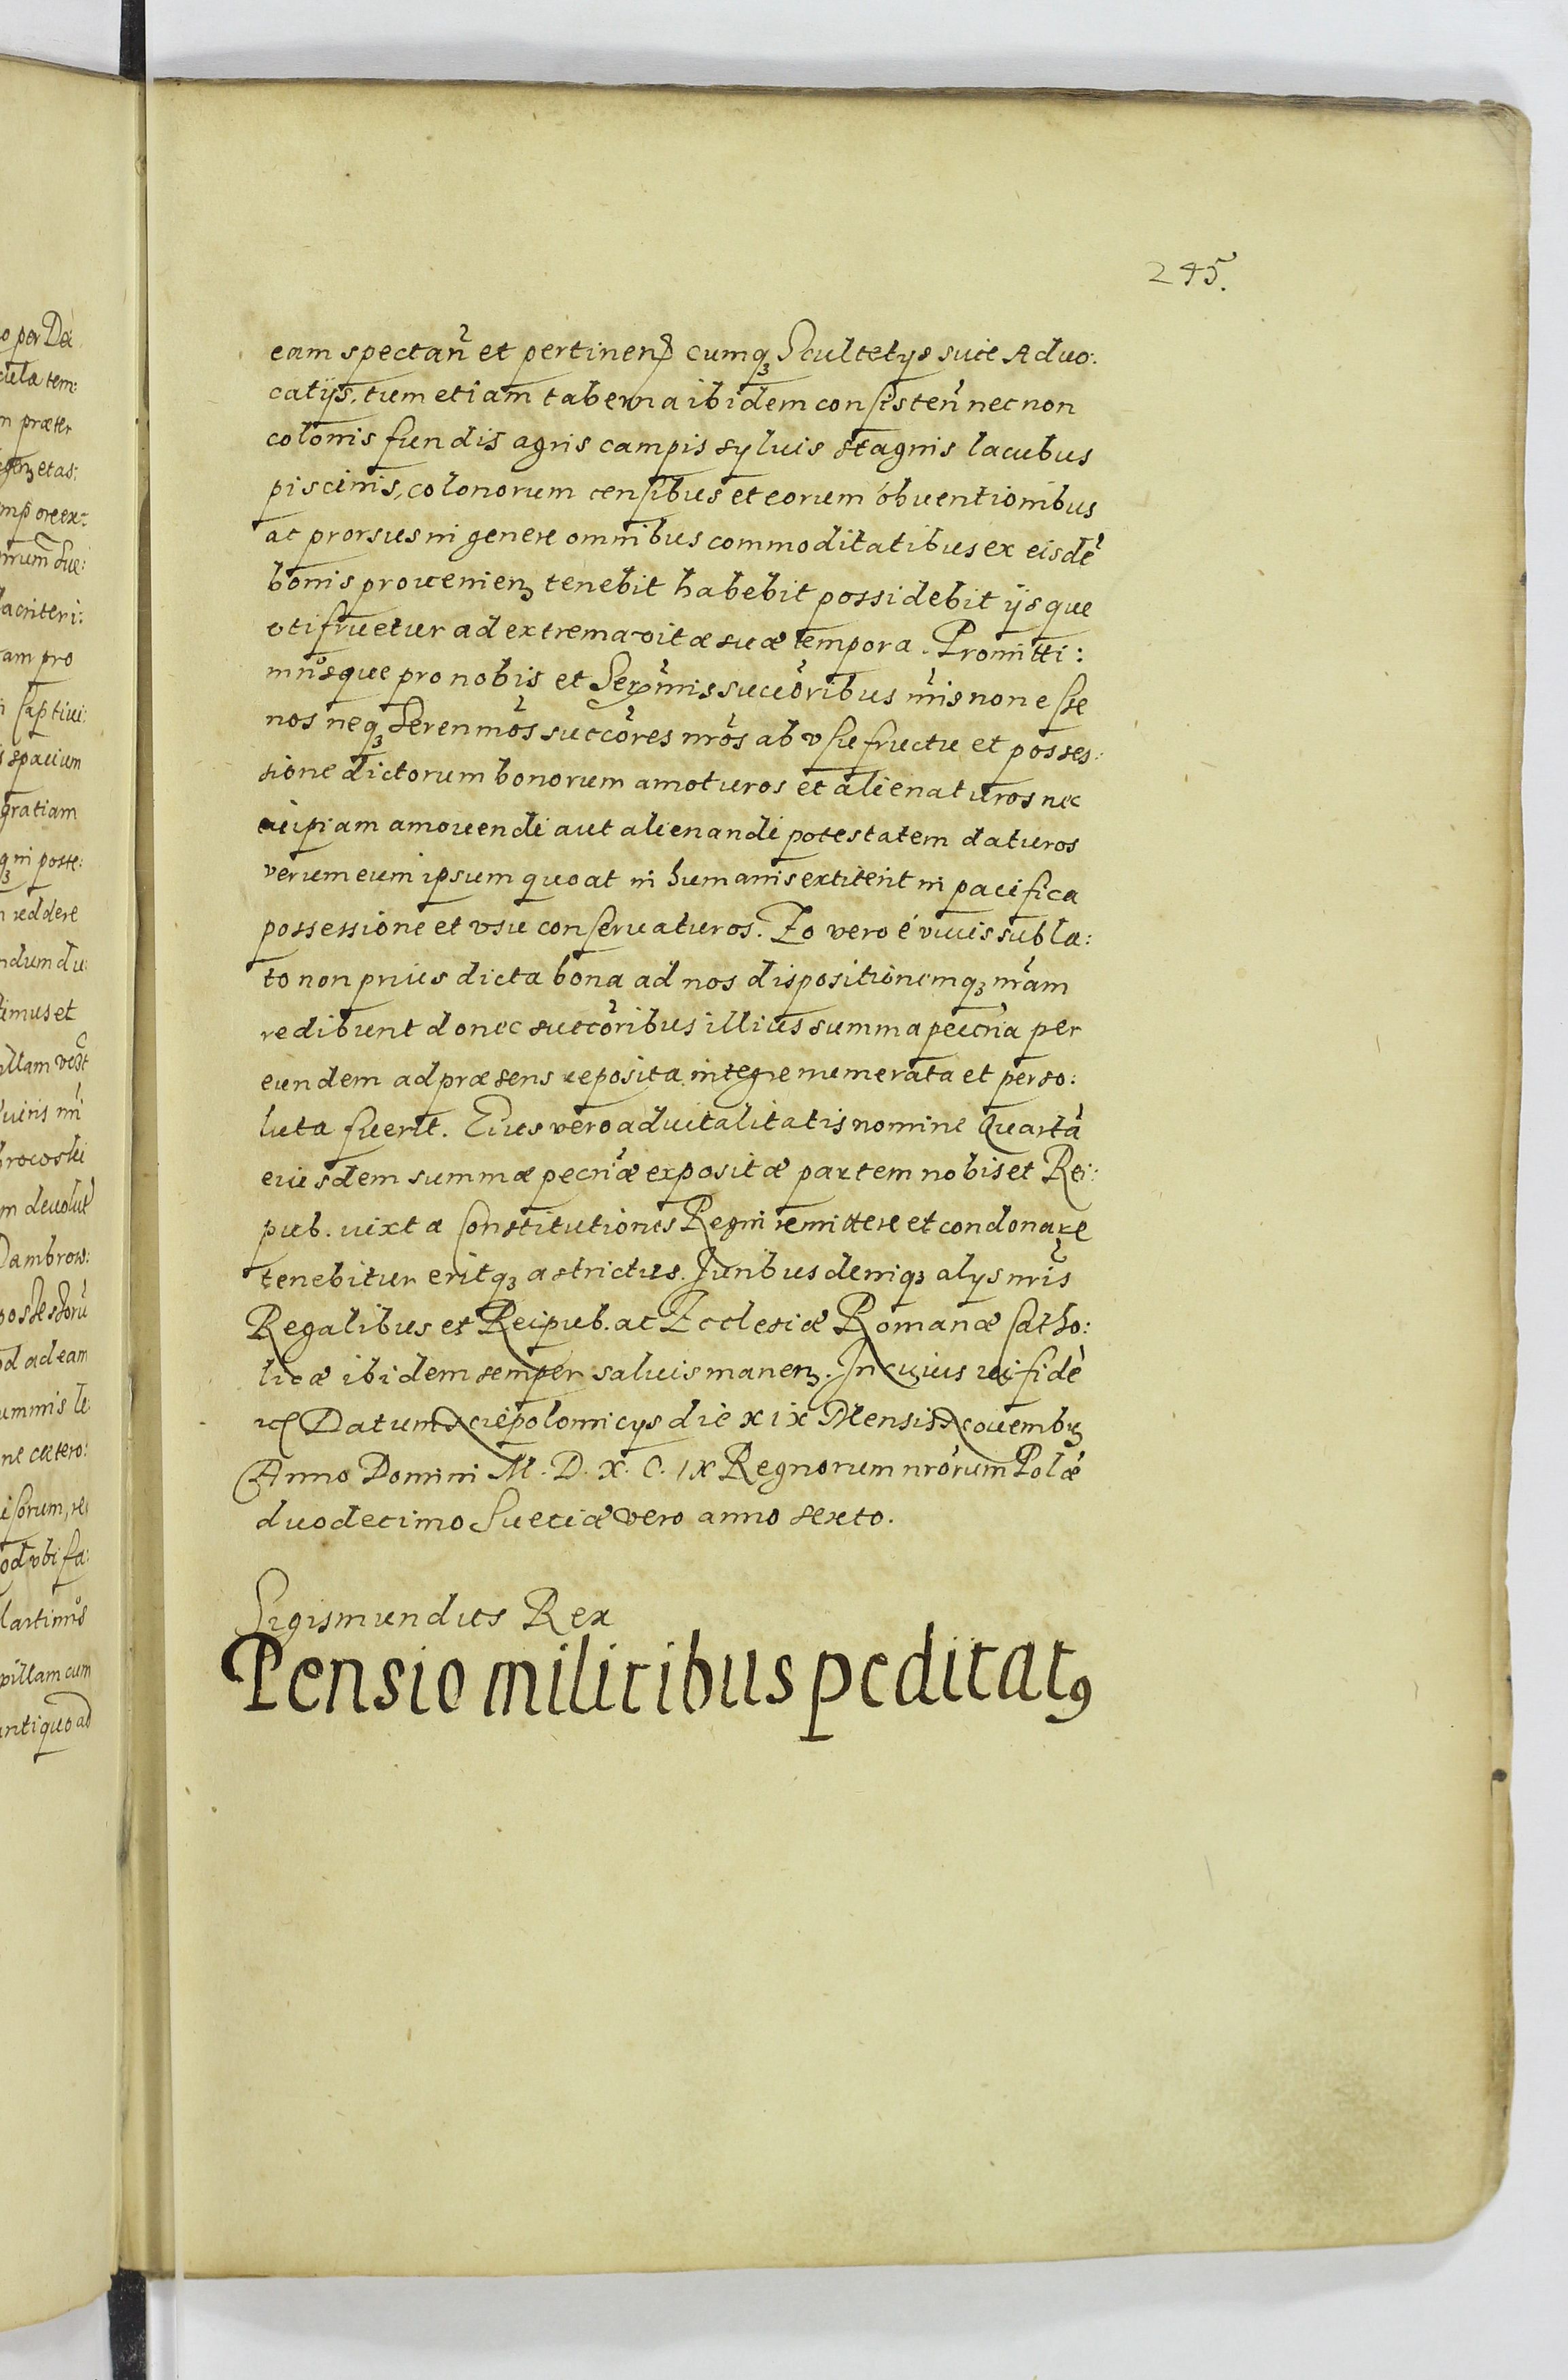 245.
eam spectan̄ et pertinen̄ cumqꝫ Scultetys siue Aduo:
catijs, tum etiam taberna ibidem consisten̄ nec non
colonis fundis agris campis syluis stagnis lacubus
piscinis, colonorum censibus et eorum obuentionibus
ac prorsus in genere omnibus commoditatibus ex eisdē
bonis prouenienꝫ tenebit habebit possidebit ijsque
vti fruetur ad extrema vitæ suæ tempora. Promitti:
musque pro nobis et Serm̄is succōribus nr̄is non esse
nos neqꝫ Serenmōs succōres nrōs ab vsufructu et posses:
sione dictorum bonorum amoturos et alienaturos nec
cuipiam amouendi aut alienandi potestatem daturos
verum eum ipsum quoat in humanis extiterit in pacifica
possessione et vsu conseruaturos. Eo vero é viuis subla:
to non prius dicta bona ad nos dispositionemqꝫ nr̄am
redibunt donec succōribus illius summa pecn̄ia per
eundem ad præsens reposita integre numerata et perso:
luta fuerit. Eius vero aduitalitatis nomine Quartā
eiusdem summæ pecn̄iæ expositæ partem nobis et Rei:
pub. iuxta Constitutiones Regni remittere et condonare
tenebitur eritqꝫ astrictus. Juribus deniqꝫ alys nr̄is
Regalibus et Reipub. ac Ecclesiæ Romanæ Catho:
licæ ibidem semper saluis manenꝫ. In cuius rei fidē
Datum Niepolomicys die xix Mensis Nouembrꝫ
Anno Domini M. D. X. C. IX Regnorum nrōrum Polæ
duodecimo Sueciæ vero anno sexto.
Sigismundus Rex
Pensio militibus peditatꝰ
o per De
cula tem:
m præter
etas:
ore ex:
acriteri:
am pro
Captiui:
spacium
gratiam
qꝫ in posse:
n reddere
ndum du:
imus et
illam
uiris
m deuolut
Dambrow:
possessorū
od ad eam
ummis le
ne cætero:
isorum, re
od vbi fa:
Martinus
villam cum
antiquo ad